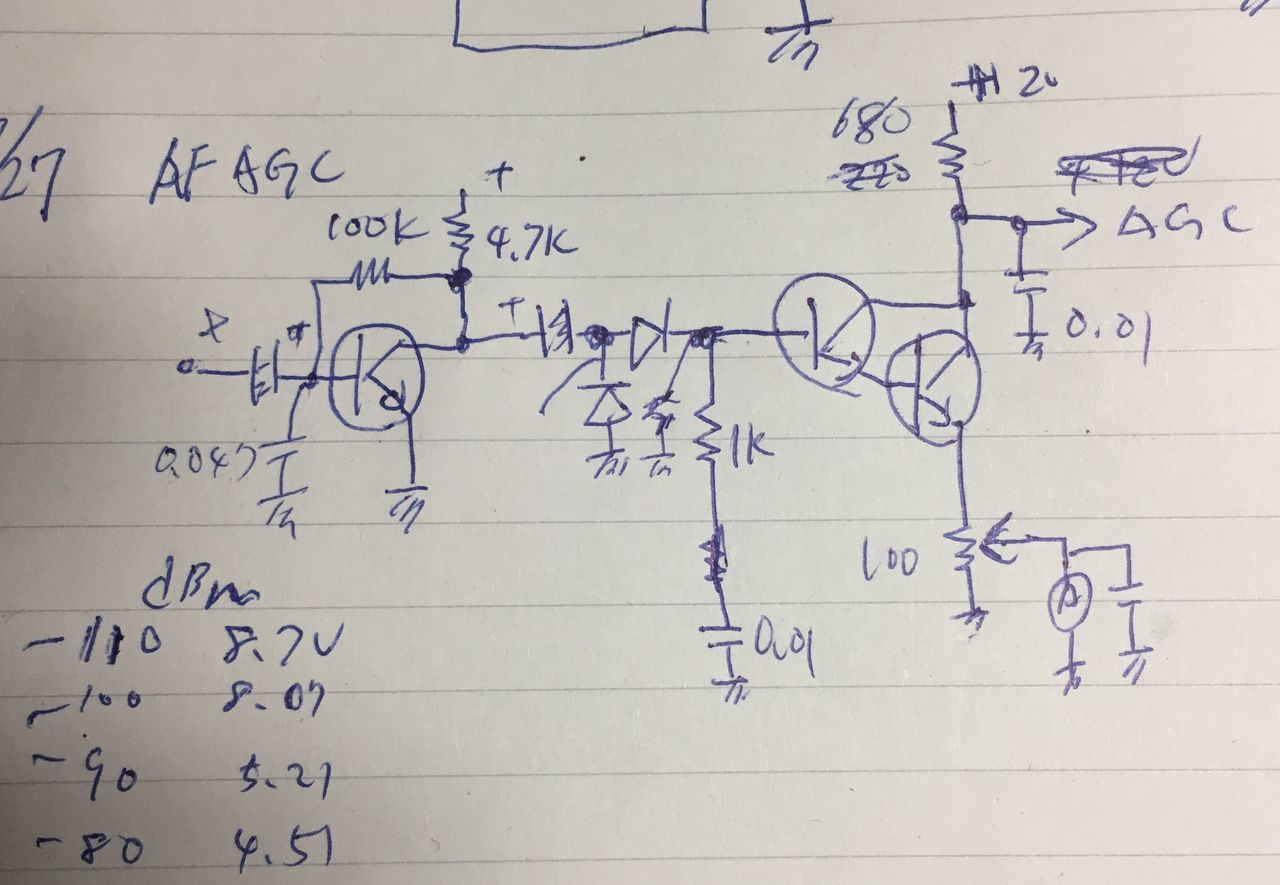 /27 AF AGC
+
100K
4.7K
680
220
AGC
+
0.01
0.047
1K
100
A
0.01
dBm
-110 8.7V
-100 8.07
-90 5.21
-80 4.51